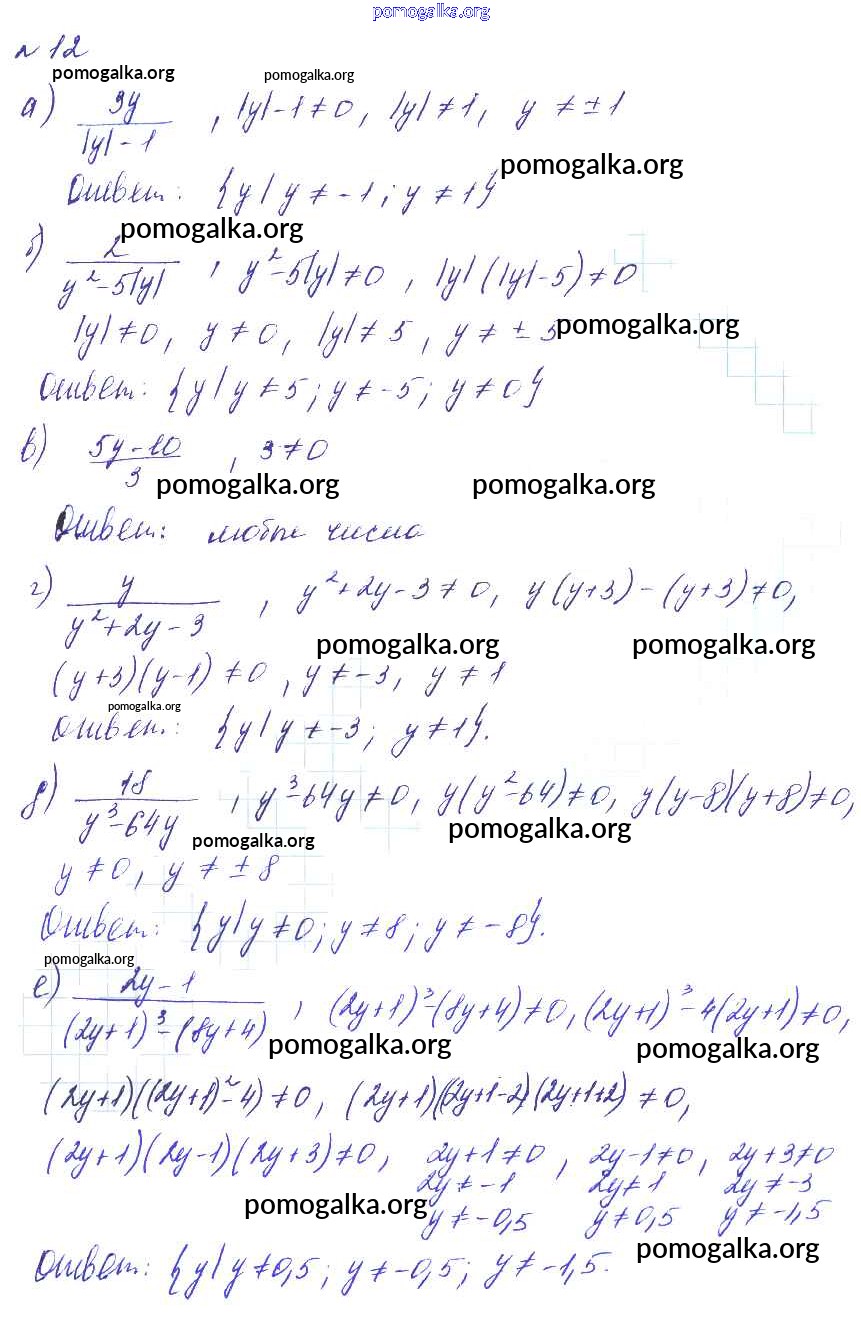 pomogalka.org
№ 12
pomogalka.org pomogalka.org
а) 9y / |y| - 1 , |y| - 1 ≠ 0, |y| ≠ 1, y ≠ ± 1
pomogalka.org
Ответ: {y | y ≠ -1; y ≠ 1}
pomogalka.org
б) 2 / y² - 5|y| , y² - 5|y| ≠ 0 , |y| (|y| - 5) ≠ 0
|y| ≠ 0, y ≠ 0, |y| ≠ 5, y ≠ ± 5
pomogalka.org
Ответ: {y | y ≠ 5; y ≠ -5; y ≠ 0}
в) 5y - 10 / 3 , 3 ≠ 0
pomogalka.org pomogalka.org
Ответ: любые числа
г) y / y² + 2y - 3 , y² + 2y - 3 ≠ 0, y (y+3) - (y+3) ≠ 0,
pomogalka.org pomogalka.org
(y+3)(y-1) ≠ 0, y ≠ -3, y ≠ 1
pomogalka.org
Ответ: {y | y ≠ -3; y ≠ 1}.
д) 18 / y³ - 64y , y³ - 64y ≠ 0, y(y² - 64) ≠ 0, y(y-8)(y+8) ≠ 0,
pomogalka.org pomogalka.org
y ≠ 0, y ≠ ± 8
Ответ: {y | y ≠ 0; y ≠ 8; y ≠ -8}.
pomogalka.org
е) 2y - 1 / (2y+1)³ - (8y+4) , (2y+1)³ - (8y+4) ≠ 0, (2y+1)³ - 4(2y+1) ≠ 0,
pomogalka.org pomogalka.org
(2y+1)((2y+1)² - 4) ≠ 0, (2y+1)(2y+1-2)(2y+1+2) ≠ 0,
(2y+1)(2y-1)(2y+3) ≠ 0, 2y+1 ≠ 0, 2y-1 ≠ 0, 2y+3 ≠ 0
2y ≠ -1 2y ≠ 1 2y ≠ -3
pomogalka.org
y ≠ -0,5 y ≠ 0,5 y ≠ -1,5
pomogalka.org
Ответ: {y | y ≠ 0,5; y ≠ -0,5; y ≠ -1,5.